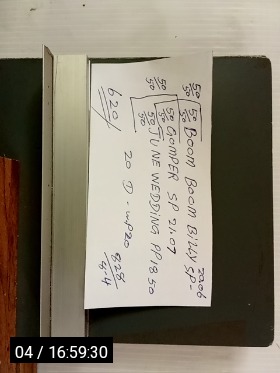 50/50 50/50 BOOM BOOM BILLY SP- 2206
50/50 50/50 GOMPER SP 21.07
50/50 JUNE WEDDING PP18.50
20 ① - WP20
620/
828
4-4
04 / 16:59:30